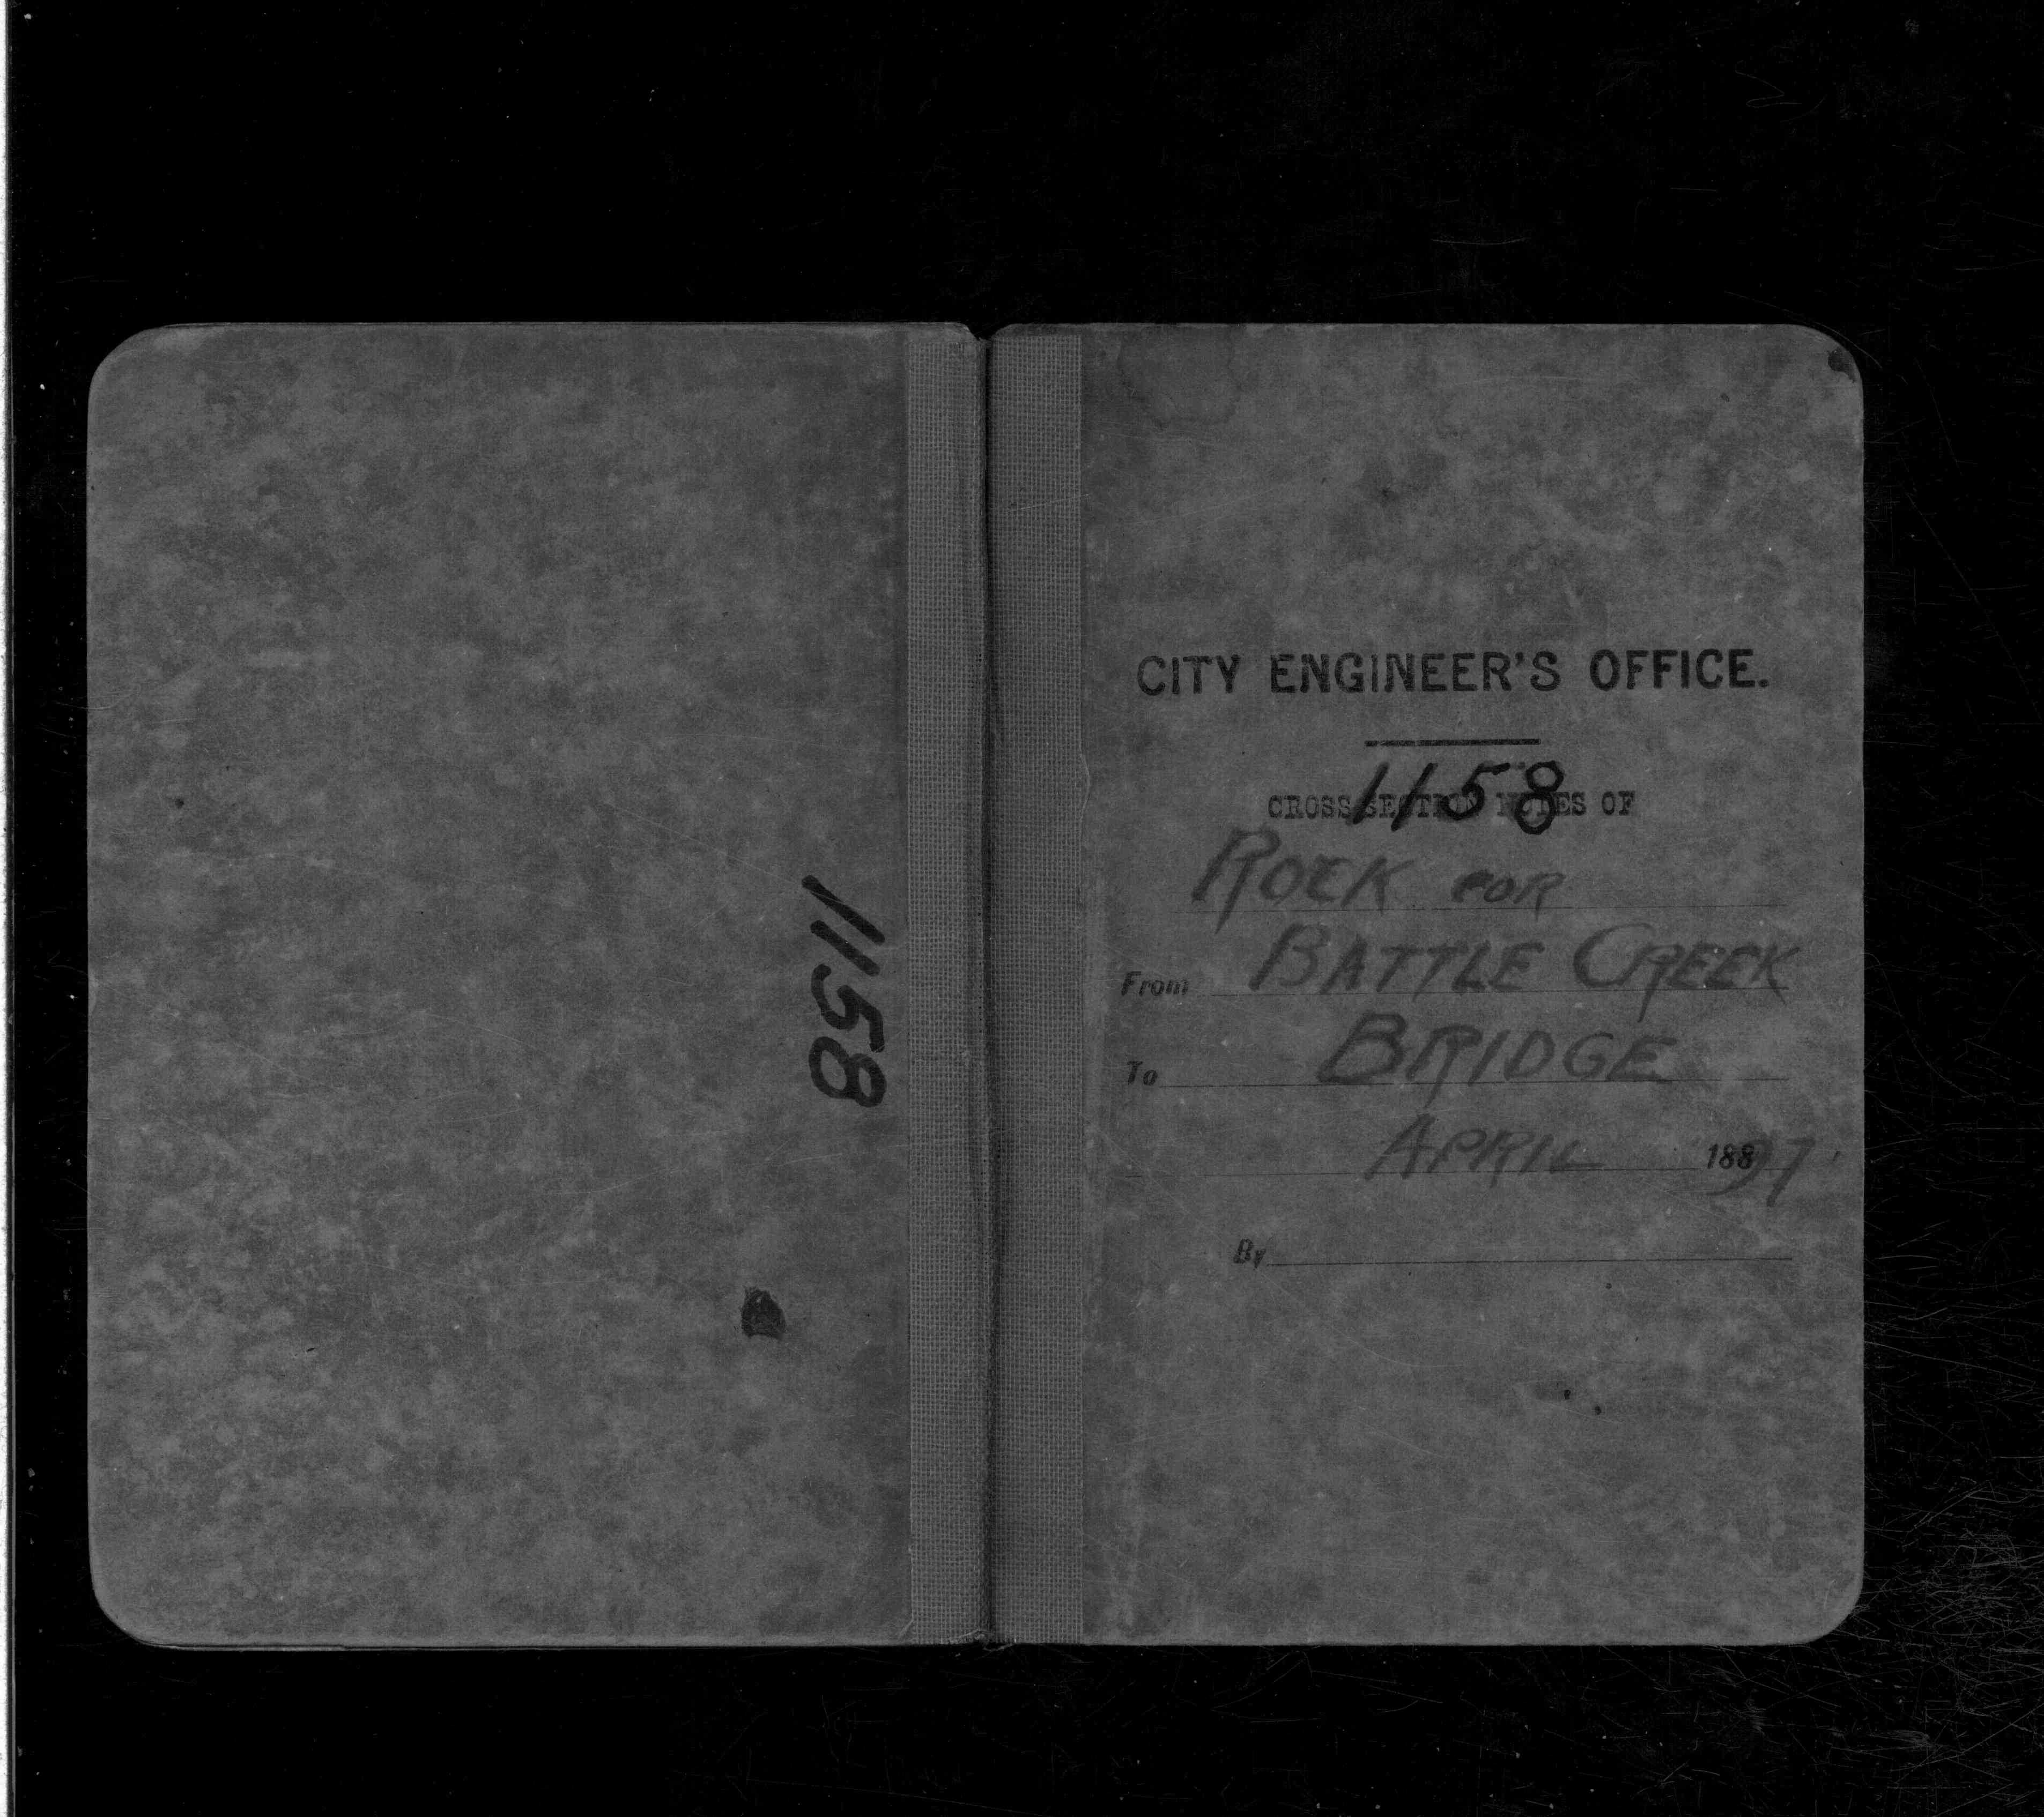 1158
CITY ENGINEER'S OFFICE.
1158
CROSS SECTION NOTES OF
ROCK FOR
From BATTLE CREEK
To BRIDGE
APRIL 1897
By